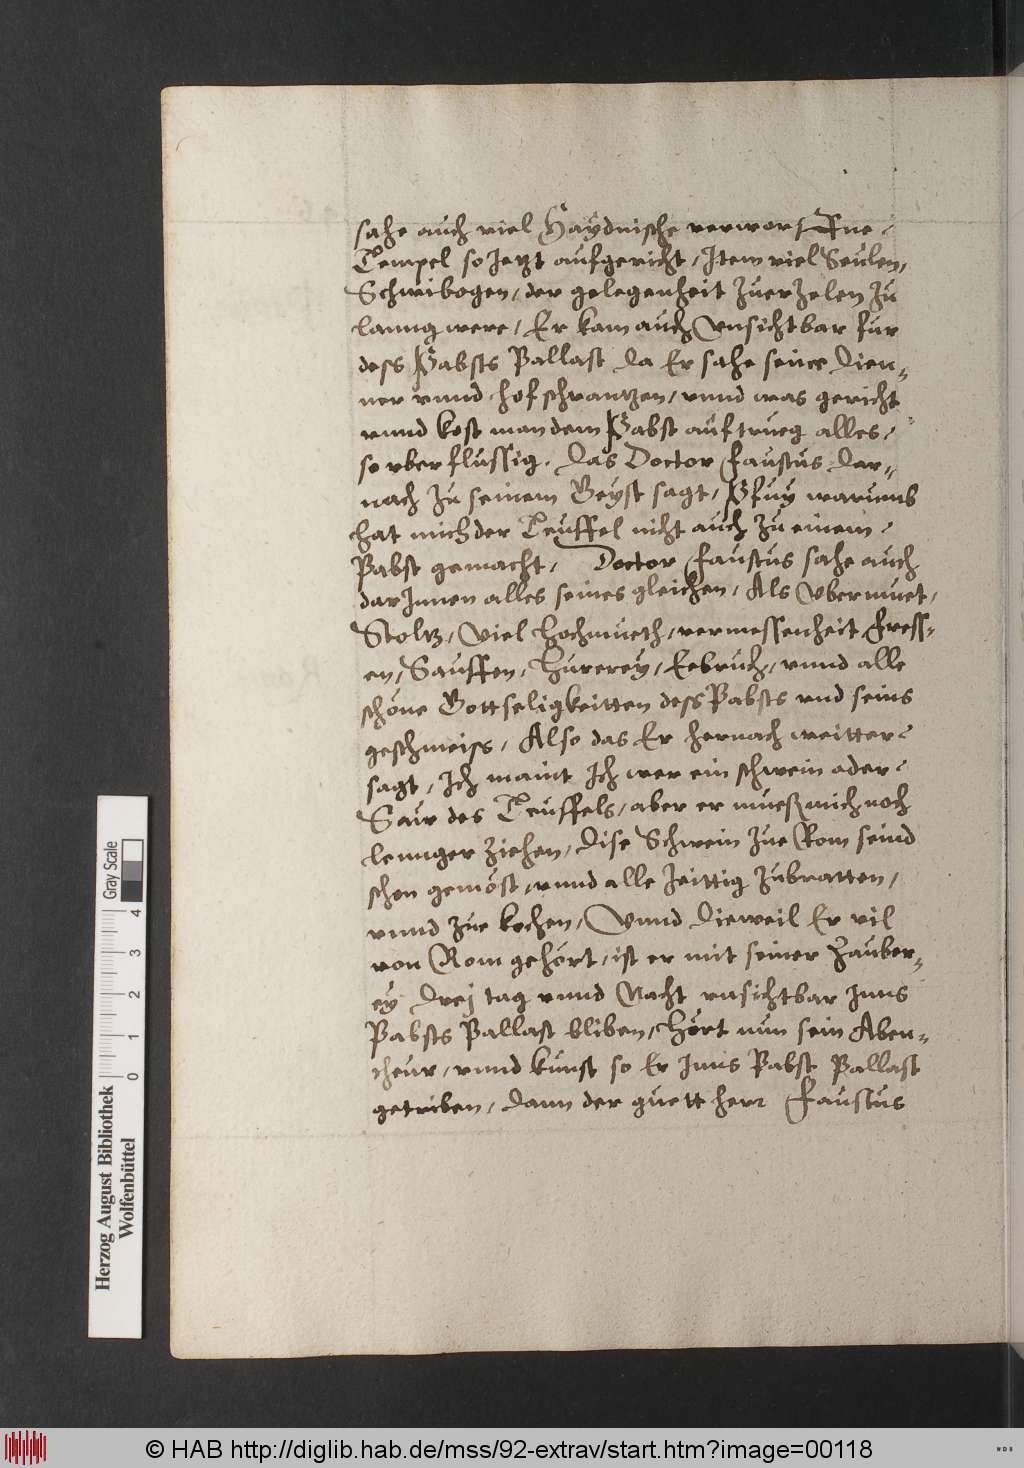 sahe auch viel Haÿdnische verworffne
Tempel so Jetzt aufgericht, Item viel Seulen,
Schwibogen, der gelegenheit Zuerzelen Zu
lanng were, Er kam auch Vnsichtbar fur
dess Pabsts Pallast da Er sahe seine dien-
ner vnnd hofschrantzen, vnnd was gericht
vnnd kost man dem Pabst auftrueg alles,
so vberflussig. das Doctor Faustus dar-
nach Zu seinem Geyst sagt, Pfuy warumb
hat mich der Teuffel nicht auch Zu einem
Pabst gemacht, Doctor Faustus sahe auch
darInnen alles seines gleichen, Als Vbermuet,
Stoltz, Viel hochmueth, vermessenheit Fress-
en, Sauffen, Hurerey, Eebruch, vnnd alle
schöne Gottseligkeitten dess Pabsts vnd seins
geschmeiss, Also das Er hernach weitter
sagt, Ich maint Ich wer ein schwein oder
Saw des Teuffels, aber er mueß mich noch
lennger ziehen, dise Schwein Zue Rom seind
schon gemöst, vnnd alle Zeittig Zubratten,
vnnd Zue kochen, Vnnd dieweil Er vil
von Rom gehört, ist er mit seiner Zauber-
ey drej tag vnnd Nacht vnsichtbar Inns
Pabsts Pallast bliben, Hört nun sein Aben-
theur, vnnd kunst so Er Inns Pabst Pallast
getriben, dann der guett herr Faustus
Gray Scale
0 1 2 3 4
Herzog August Bibliothek
Wolfenbüttel
© HAB http://diglib.hab.de/mss/92-extrav/start.htm?image=00118